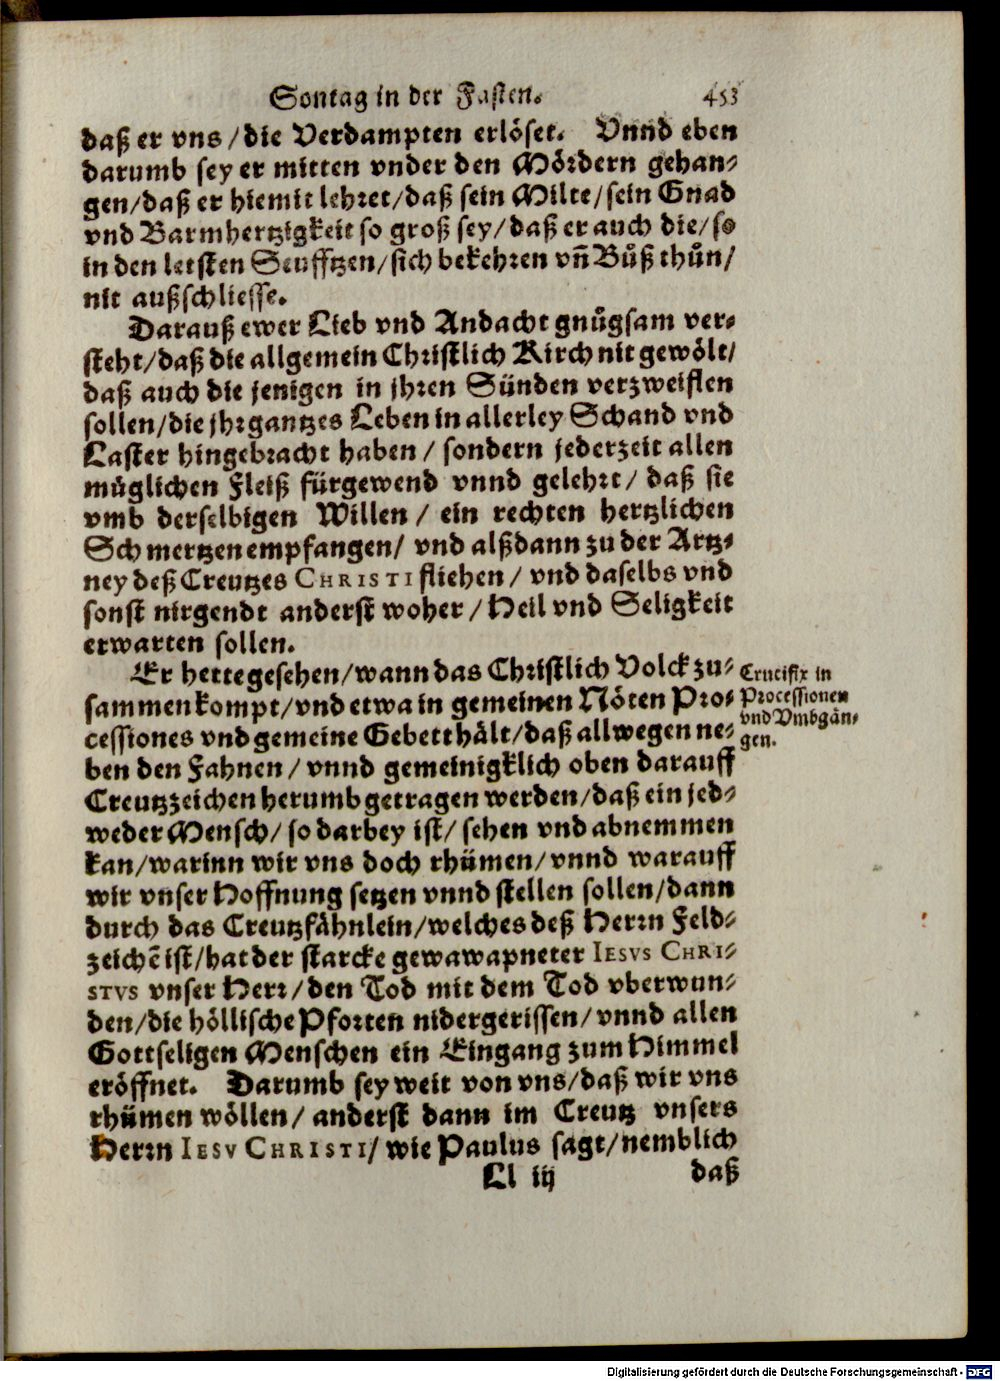 Sontag in der Fasten. 453
daß er vns / die Verdampten erlöset. Vnnd eben
darumb sey er mitten vnder den Mördern gehan-
gen/daß er hiemit lehret/daß sein Milte/sein Gnad
vnd Barmhertzigkeit so groß sey/daß er auch die/so
in den letsten Seufftzen/sich bekehren vñ Bůß thůn/
nit außschliesse.
Darauß ewer Lieb vnd Andacht gnůgsam ver-
steht/daß die allgemein Christlich Kirch nit gewölt/
daß auch die jenigen in jhren Sünden verzweiflen
sollen/die jhr gantzes Leben in allerley Schand vnd
Laster hingebracht haben / sondern jederzeit allen
müglichen Fleiß fürgewend vnnd gelehrt/ daß sie
vmb derselbigen Willen / ein rechten hertzlichen
Schmertzen empfangen/ vnd alßdann zu der Artz-
ney deß Creutzes CHRISTI fliehen / vnd daselbs vnd
sonst nirgendt anderst woher / Heil vnd Seligkeit
erwarten sollen.
Er hette gesehen/wann das Christlich Volck zu-
sammen kompt/vnd etwa in gemeinen Nöten Pro-
cessiones vnd gemeine Gebett hält/daß allwegen ne-
ben den Fahnen / vnnd gemeinigklich oben darauff
Creutzzeichen herumb getragen werden/daß ein jed-
weder Mensch/ so darbey ist/ sehen vnd abnemmen
kan/warinn wir vns doch rhümen/vnnd warauff
wir vnser Hoffnung setzen vnnd stellen sollen/dann
durch das Creutzfähnlein/welches deß Herrn Feld-
zeichē ist/hat der starcke gewawapneter IESVS CHRI-
STVS vnser Herr/den Tod mit dem Tod vberwun-
den/die höllische Pforten nidergerissen/vnnd allen
Gottseligen Menschen ein Eingang zum Himmel
eröffnet. Darumb sey weit von vns/daß wir vns
rhümen wöllen/ anderst dann im Creutz vnsers
Herrn IESV CHRISTI/ wie Paulus sagt/nemblich
Ll iij daß
Crucifix in
Processionen
vnd Vmbgän-
gen.
Digitalisierung gefördert durch die Deutsche Forschungsgemeinschaft - DFG